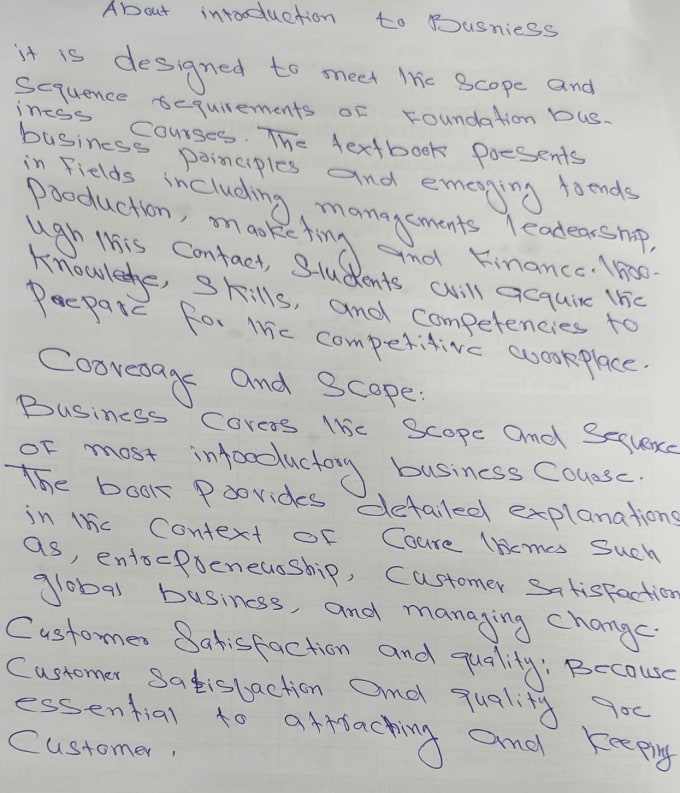 About introduction to Busniess
it is designed to meet the scope and
Sequence requirements of Foundation bus-
iness Courses. The textbook presents
business principles and emerging trends
in Fields including managements leadearship,
production, marketing and Finance. thro-
ugh this Contact, Students will acquire the
Knowledge, Skills, and Competencies to
Prepare for the competitive workplace.
Cooverage and Scope:
Business Covers the Scope and Sequence
OF most introductory business Course.
The book Provides detailed explanations
in the Context OF Coure themes Such
as, entrepreneurship, Customer Satisfaction
global business, and managing change.
Customer Satisfaction and quality: Becouse
Customer Satisfaction and quality are
essential to attracting and Keeping
Customer.